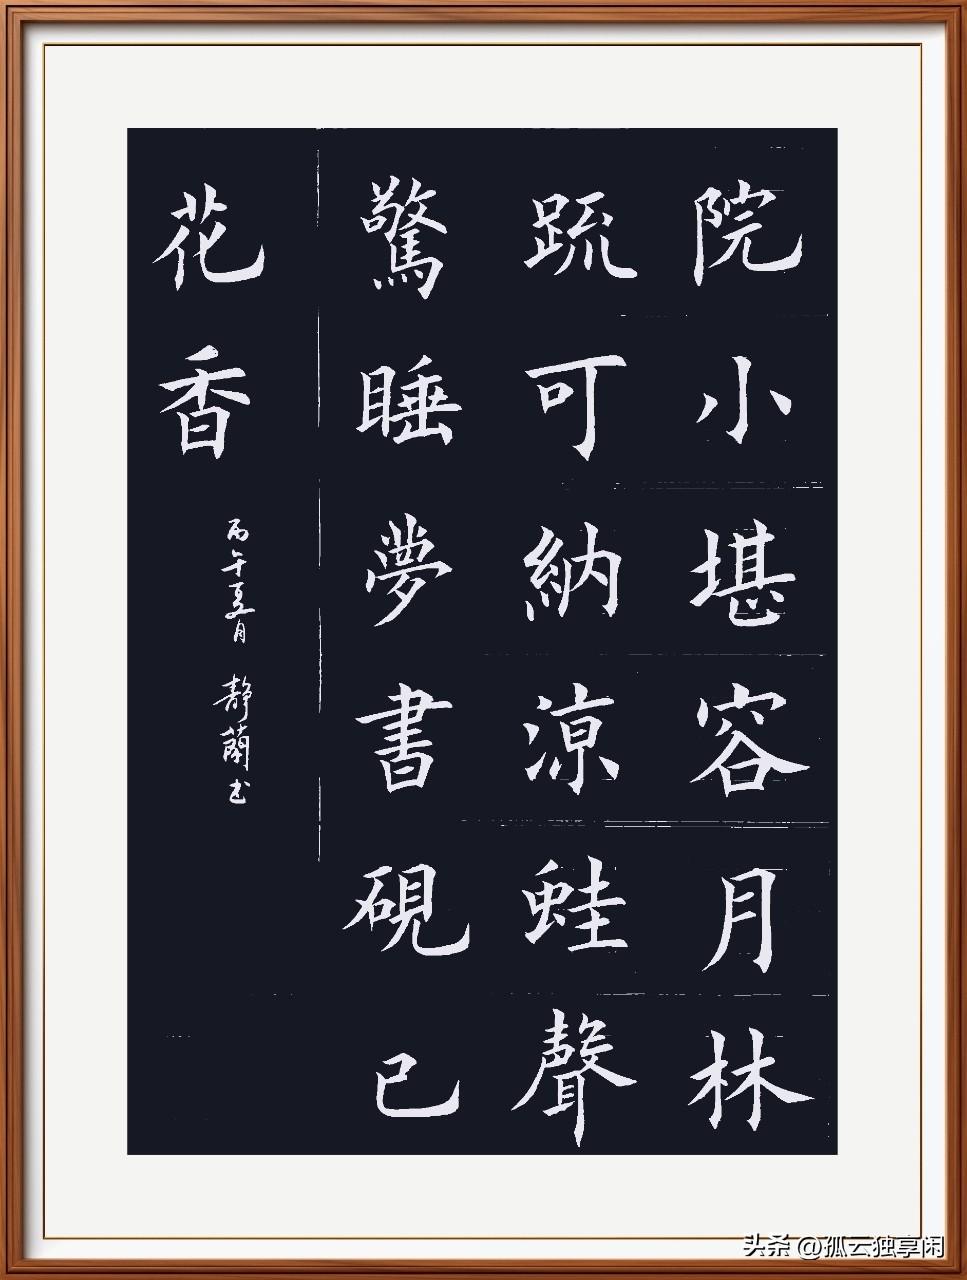 院小堪容月林
疏可納涼蛙聲
驚睡夢書硯已
花香
丙午五月 靜蘭书
头杀 @孤云独享闲